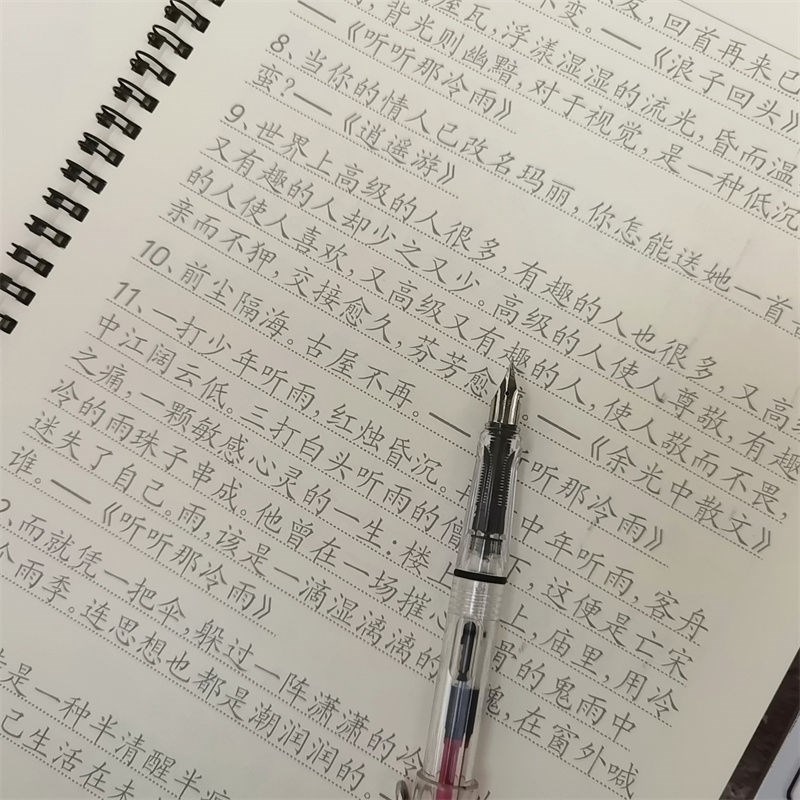 友,回首再来已
不变。—《浪子回头》
屋瓦,浮漾湿湿的流光,昏而温
背光则幽黯,对于视觉,是一种低沉
—《听听那冷雨》
8、当你的情人已改名玛丽,你怎能送她一首
蛮?—《逍遥游》
9、世界上高级的人很多,有趣的人也很多,又高级
又有趣的人却少之又少。高级的人使人尊敬,有趣
的人使人喜欢,又高级又有趣的人,使人敬而不畏,
亲而不狎,交接愈久,芬芳愈。—《余光中散文》
10、前尘隔海。古屋不再。—听听那冷雨》
11、一打少年听雨,红烛昏沉。中年听雨,客舟
中江阔云低。三打白头听雨的僧下,这便是亡宋
之痛,一颗敏感心灵的一生:楼上,庙里,用冷
冷的雨珠子串成。他曾在一场摧心骨的鬼雨中
迷失了自己。雨,该是一滴湿漓漓的魂,在窗外喊
谁。—《听听那冷雨》
2、而就凭一把伞,躲过一阵潇潇的冷
个雨季。连思想也都是潮润润的。—
是一种半清醒半
己生活在未